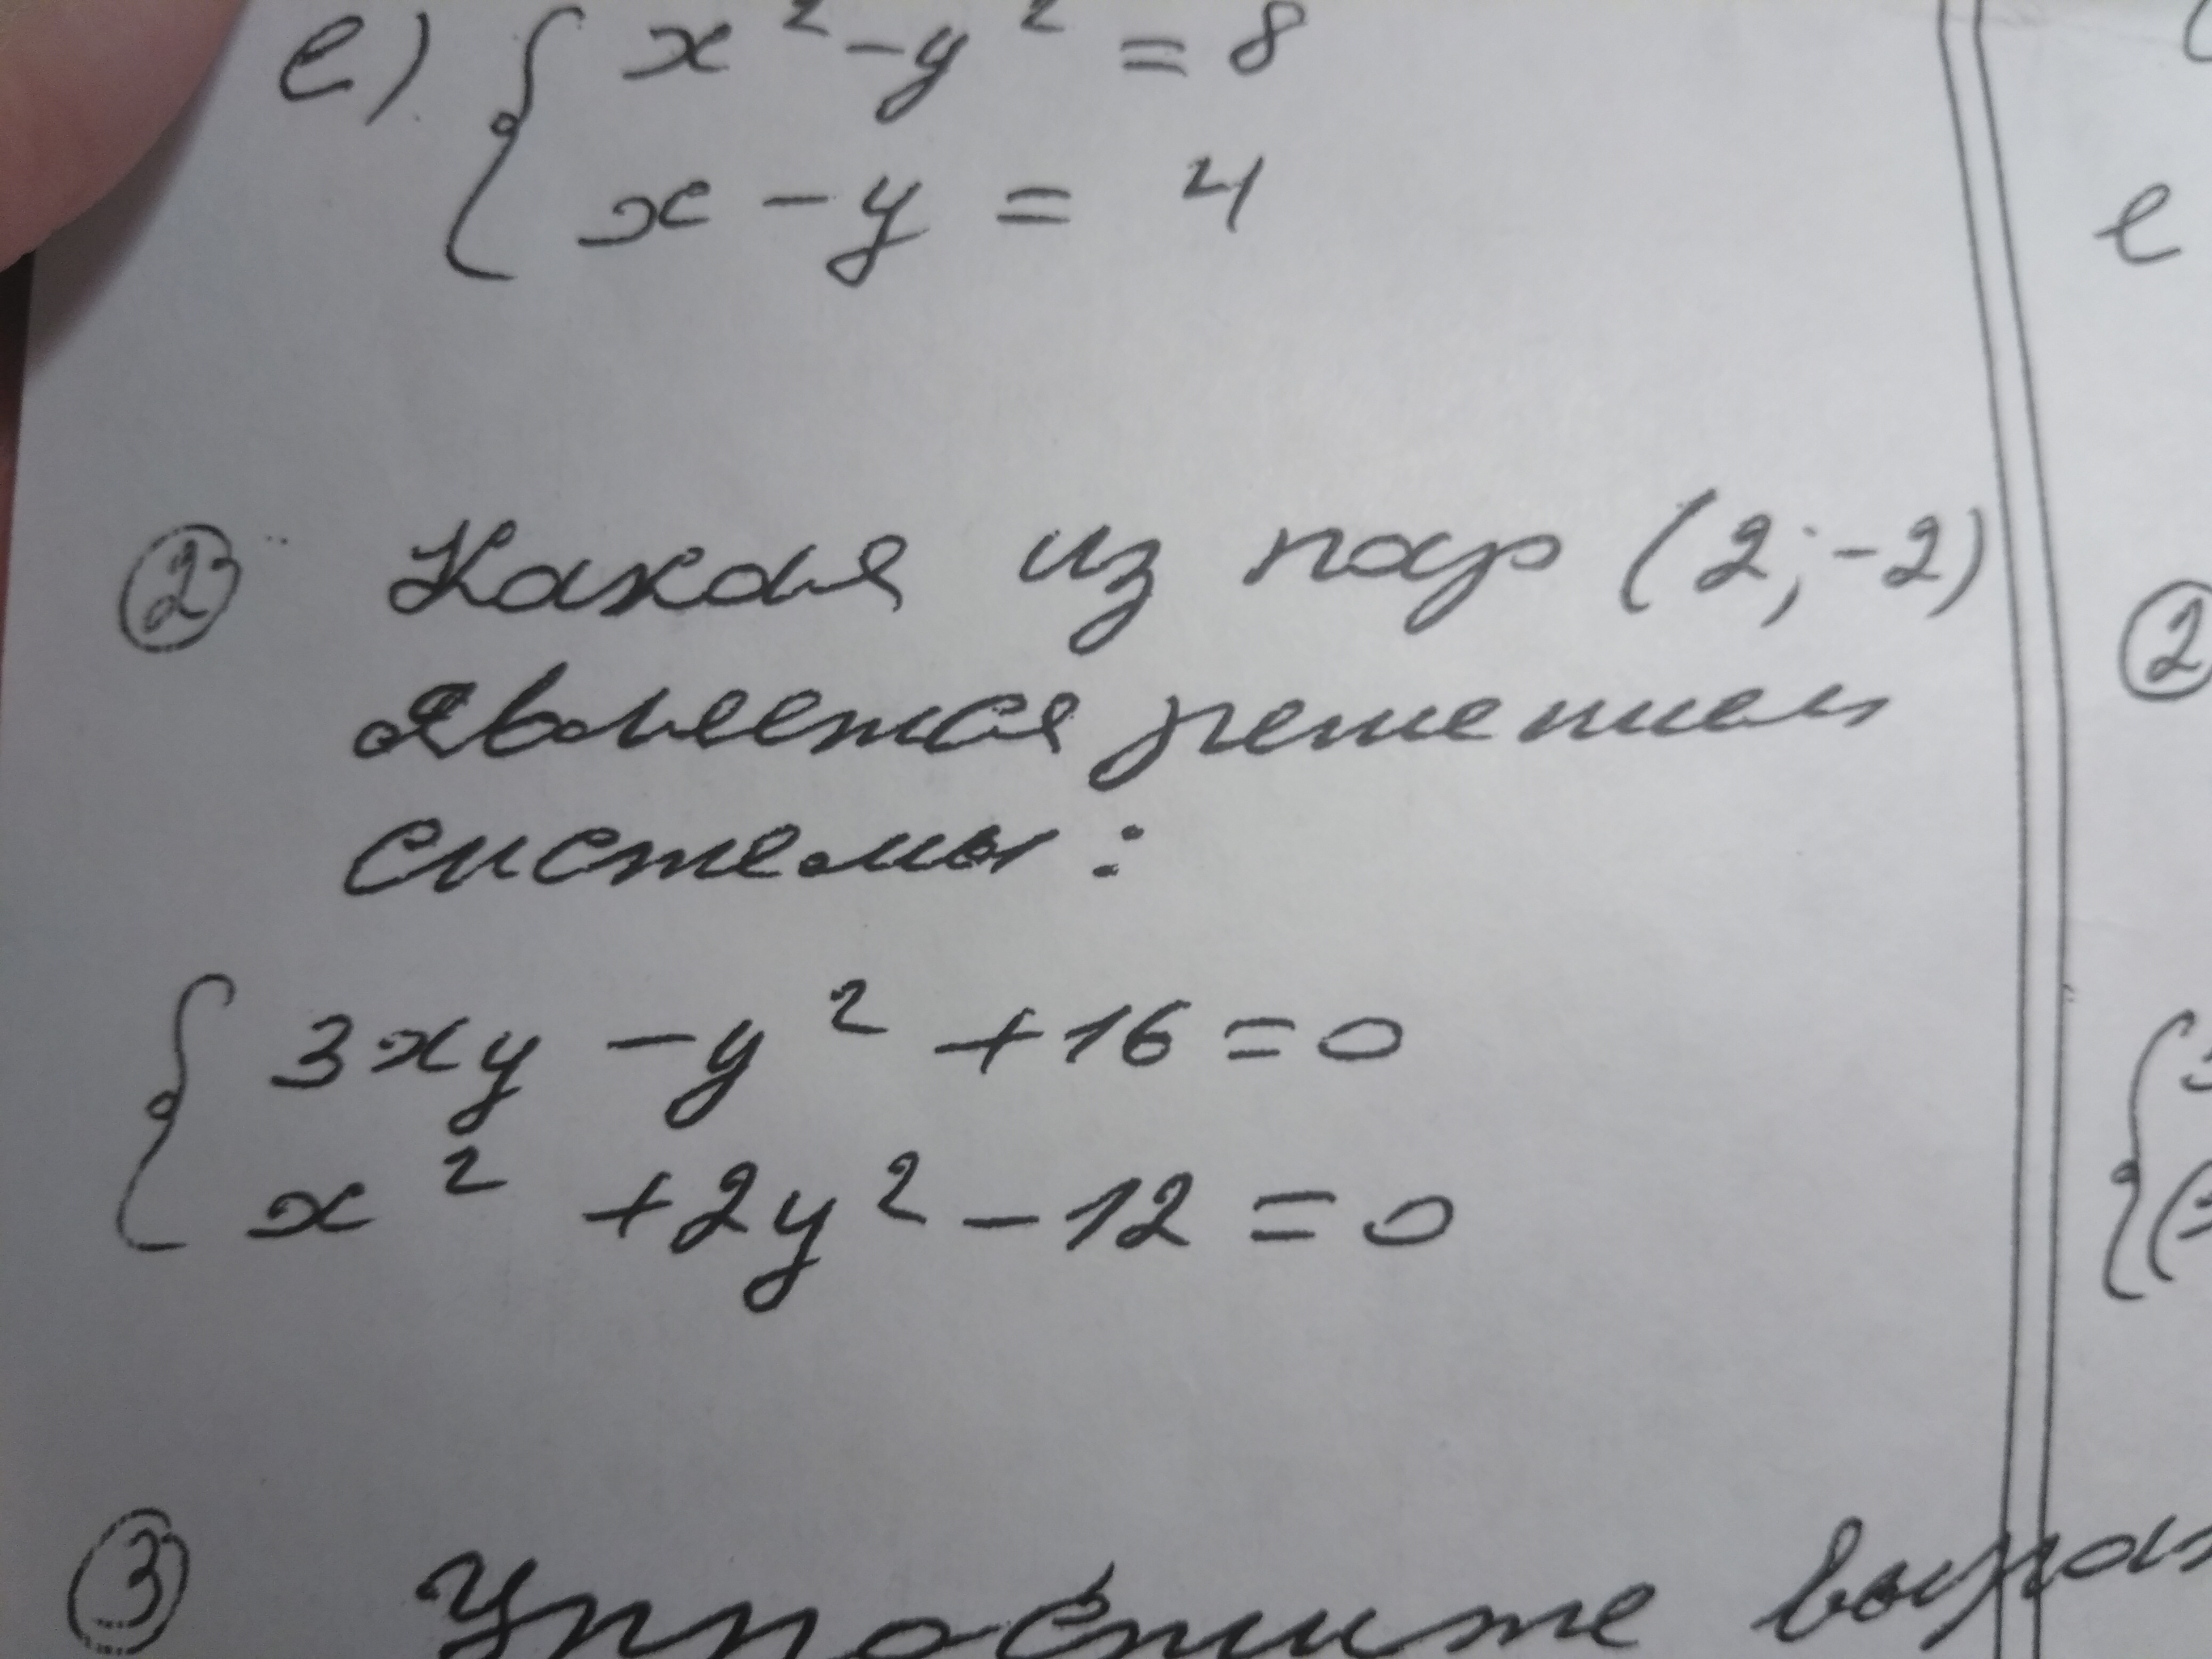 е) { x² - y² = 8
x - y = 4
② Какая из пар (2; -2)
является решением
системы:
{ 3xy - y² + 16 = 0
x² + 2y² - 12 = 0
③ Упростите
е
②